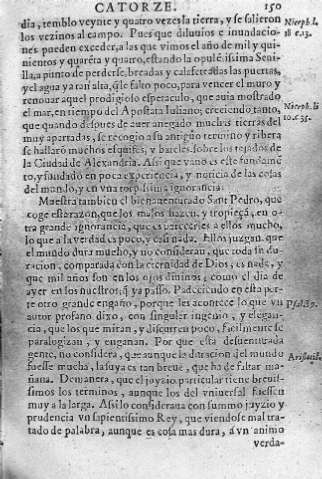 CATORZE. 150
dia, temblo veynte y quatro vezes la tierra, y se salieron
los vezinos al campo. Pues que diluuios e inundacio-
nes pueden exceder, a las que vimos el año de mil y qui-
nientos y quarẽta y quatro, estando la opulẽtissima Seui-
lla, a punto de perderse, breadas y calafeteadas las puertas,
y el agua ya tan alta, q̃ le falto poco, para vencer el muro y
renouar aquel prodigioso espetaculo, que auia mostrado
el mar, en tiempo del Apostata Iuliano; creciendo tanto,
que quando despues de auer anegado muchas tierras del
muy apartadas, se recogio a su antiguo termino y ribera
se hallarõ muchos esquifes, y bareles sobre los tejados de
la Ciudad de Alexandria. Assi que vano es este fundamẽ
to, y fundado en poca experiencia, y noticia de las cosas
del mundo, y en vna torpissima ignorancia.
Muestra tambien el bienauenturado Sant Pedro, que
coge esta razon, que los malos hazen, y tropieçã, en o-
tra grande ignorancia, que es parecerles a ellos mucho,
lo que a la verdad es poco, y casi nada. Ellos juzgan, que
el mundo dura mucho, y no consideran, que toda su du-
racion, comparada con la eternidad de Dios, es nada, y
que mil años son en los ojos diuinos, como el dia de
ayer en los nuestros, q̃ ya passo. Padecido en esta par-
te otro grande engaño, porque les acontece lo que vn
autor profano dixo, con singular ingenio, y elegan-
cia, que los que miran, y discurren poco, facilmente se
paralogizan, y engañan. Por que esta desuenturada
gente, no considera, que aunque la duracion del mundo
fuesse mucha, la suya es tan breue, que ha de faltar ma-
ñana. De manera, que el joyzio particular tiene breuis-
simos los terminos, aunque los del vniuersal fuessen
muy a la larga. Assi lo consideraua con summo juyzio y
prudencia vn sapientissimo Rey, que viendose mal tra-
tado de palabra, aunque es cosa mas dura, a vn animo
verda-
Niceph. l.
18 c. 13.
Niceph. li
10 c. 35.
Psal. 89.
Aristotel.